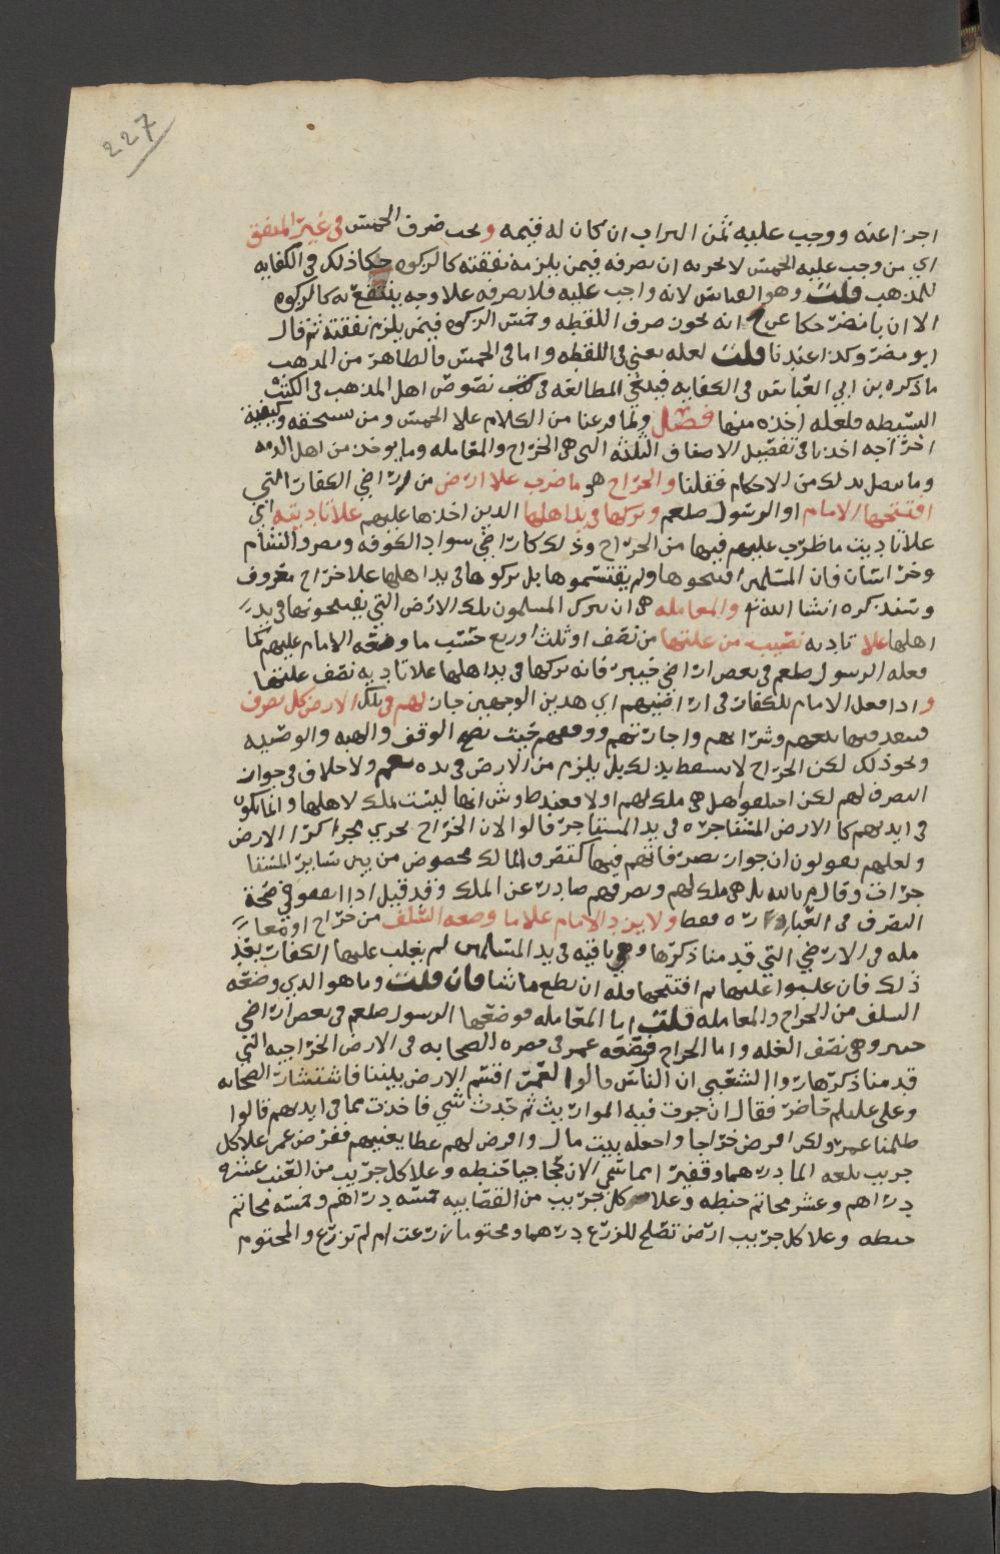 227
اجزا عنه ووجب عليه ثمن التراب ان كان له قيمه ويجب صرف الخمس في غير المنفق
اي من وجب عليه الخمس لا يجزيه ان يصرفه فيمن يلزمه نفقته كالزكوه حكا ذلك في الكفايه
للمذهب قلت وهو القياس لانه واجب عليه فلا يصرفه علا وجه ينتفع به كالزكوه
الا ان با مضر حكا عن انه يجوز صرف اللقطه وخمس الزكوه فيمن يلزم نفقته ثم قال
ابو مضر وكذا عندنا قلت لعله يعني في اللقطه واما في الخمس فالظاهر من المذهب
ما ذكره بن ابي العباس في الكفايه فينبغي المطالعه في كتب نصوص اهل المذهب في الكتب
البسيطه فلعله اخذه منها فصل ولما فرغنا من الكلام علا الخمس ومن يستحقه وكيفية
اخراجه اخذنا في تفصيل الاصناف الثلثه التي هي الخراج والمعامله وما يوخذ من اهل الذمه
وما يتصل بذلك من الاحكام فقلنا والخراج هو ما ضرب علا ارض من اراضي الكفار التي
افتتحها الامام او الرسول صلعم وتركها في يد اهلها الذين اخذها عليهم علا تاديته اي
علا تاديت ما ضرب عليهم فيها من الخراج وذلك كاراضي سواد الكوفه ومصر والشام
وخراسان فان المسلمين افتتحوها ولم يقتسموها بل تركوها في يد اهلها علا خراج معروف
وسنذكره انشا الله تع والمعامله هي ان يترك المسلمون تلك الارض التي يفتتحونها في يد
اهلها علا تاديه نصيب من غلتها من نصف او ثلث او ربع حسب ما وضعه الامام عليهم كما
فعله الرسول صلعم في بعض اراضي خيبر فانه تركها في يد اهلها علا تاديه نصف غلتها
واذا فعل الامام للكفار في اراضيهم اي هذين الوجهين جاز لهم في تلك الارض كل تصرف
فينفذ فيها بيعهم وشراهم واجارتهم ووقفهم حيث يصح الوقف والهبه والوصيه
ونحو ذلك لكن الخراج لا يسقط بذلك بل يلزم من الارض في يده نعم ولا خلاف في جواز
التصرف لهم لكن اختلفوا هل هي ملك لهم او لا فعند ط وش انها ليست بملك لاهلها وانما تكون
في ايديهم كا الارض المستاجره في يد المستاجر قالوا لان الخراج يجري مجرا كرا الارض
ولعلهم يقولون ان جواز تصرفاتهم فيها كتصرف المالك مخصوص من بين ساير المستا
جرات وقال م بالله بل هي ملك لهم وتصرفهم صادر عن الملك وقد قيل اذا اتفقو في صحة
التصرف في العباره فقط ولا يزد الامام علا ما وضعه السلف من خراج او معا
مله في الاراضي التي قدمنا ذكرها وهي باقيه في يد المسلمين لم يغلب عليها الكفار بعد
ذلك فان غلبوا عليها ثم افتتحها فله ان يضع ما شا فان قلت وما هو الذي وضعه
السلف من الخراج والمعامله قلت اما المعامله فوضعها الرسول صلعم في بعض اراضي
خيبر وهي نصف الغله واما الخراج فوضعه عمر في الصحابه في الارض الخراجيه التي
قدمنا ذكرها روا الشعبي ان الناس قالوا لعمر اقسم الارض بيننا فاستشار الصحابه
وعلي عليلم حاضر فقال ان جرت فيه المواريث ثم حدث شي فاخذت مما في ايديهم قالوا
ظلمنا عمر ولكن افرض خراجا واجعله بيت مال وافرض لهم عطا يغنيهم ففرض عمر علا كل
جريب بلغه الما درهما وقفيزا يسمى الان حجاجيا حنطه وعلا كل جريب من العنب عشره
دراهم وعشر مخاتم حنطه وعلا كل جريب من القصابيه خمسه دراهم وخمسه مخاتم
حنطه وعلا كل جريب ارض تصلح للزرع درهما ومختوما زرعت ام لم تزرع والمختوم